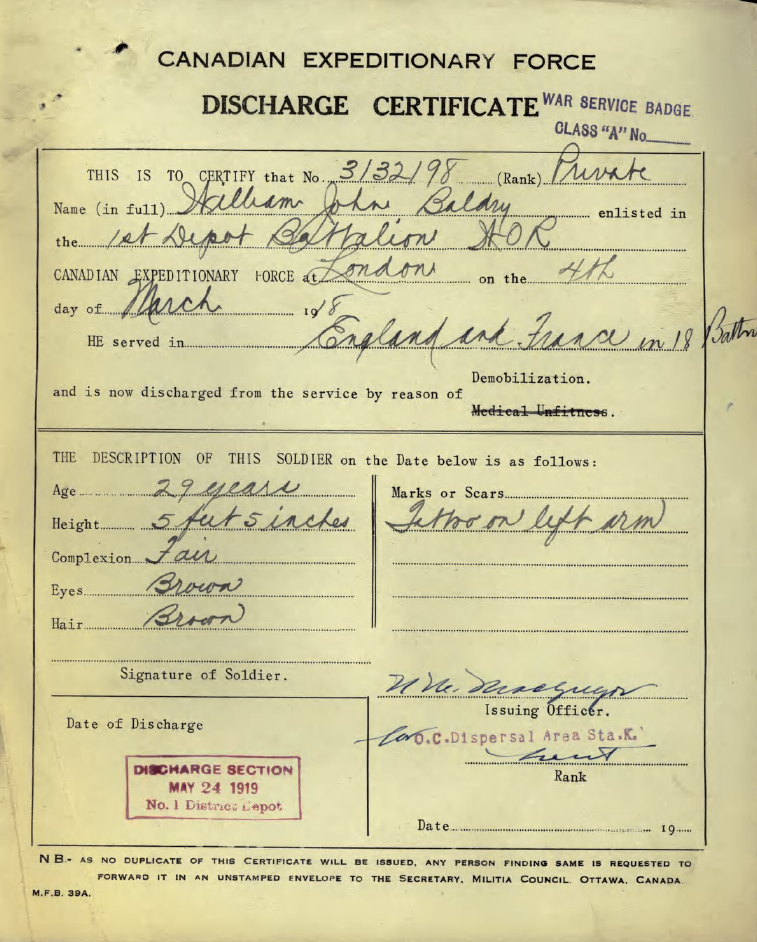 CANADIAN EXPEDITIONARY FORCE
DISCHARGE CERTIFICATE
WAR SERVICE BADGE
CLASS "A" No
THIS IS TO CERTIFY that No. 3132198 (Rank) Private
Name (in full) William John Baldry enlisted in
the 1st Depot Battalion WOR
CANADIAN EXPEDITIONARY FORCE at London on the 4th
day of March 1918
HE served in England and France in 18 Battn
and is now discharged from the service by reason of Demobilization.
Medical Unfitness.
THE DESCRIPTION OF THIS SOLDIER on the Date below is as follows:
Age 29 years
Height 5 feet 5 inches
Complexion Fair
Eyes Brown
Hair Brown
Marks or Scars
Tattoo on left arm
Signature of Soldier.
MacGregor
Issuing Officer.
for O.C. Dispersal Area Sta. K.
Lieut
Rank
Date of Discharge
DISCHARGE SECTION
MAY 24 1919
No. 1 District Depot
Date 19
NB.- AS NO DUPLICATE OF THIS CERTIFICATE WILL BE ISSUED, ANY PERSON FINDING SAME IS REQUESTED TO
FORWARD IT IN AN UNSTAMPED ENVELOPE TO THE SECRETARY, MILITIA COUNCIL, OTTAWA, CANADA.
M.F.B. 39A.